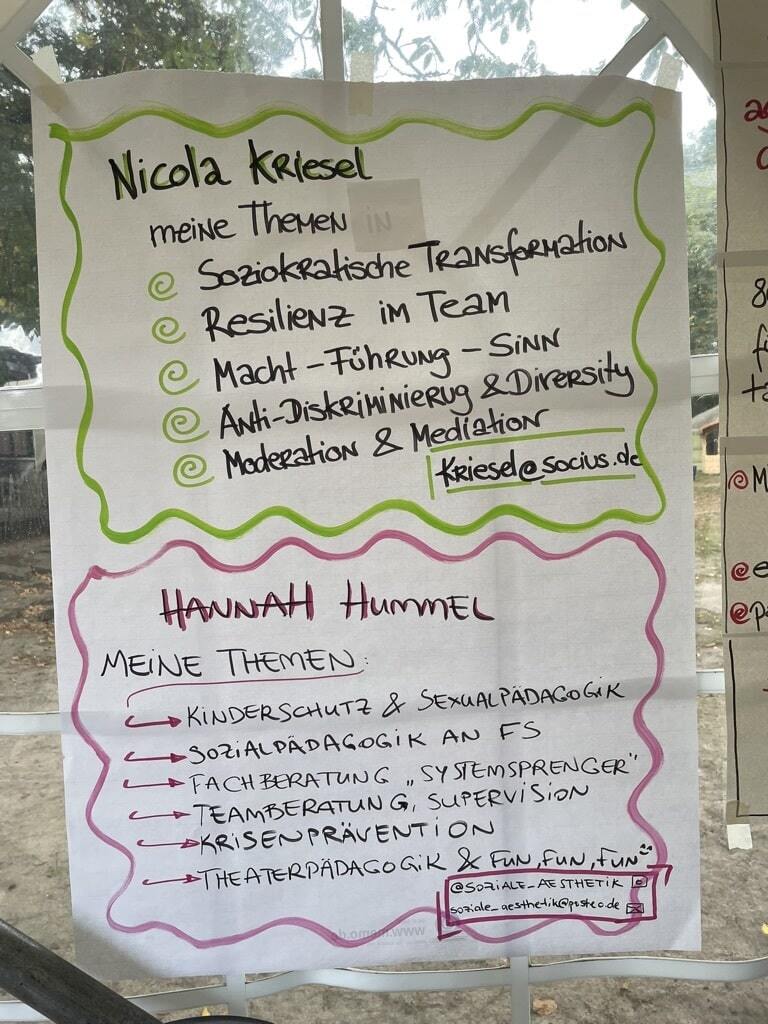 Nicola Kriesel
meine Themen in
Soziokratische Transformation
Resilienz im Team
Macht – Führung – Sinn
Anti-Diskriminierug & Diversity
Moderation & Mediation
Kriesel@socius.de
HANNAH HUMMEL
MEINE THEMEN:
KINDERSCHUTZ & SEXUALPÄDAGOGIK
SOZIALPÄDAGOGIK AN FS
FACHBERATUNG „SYSTEMSPRENGER"
TEAMBERATUNG, SUPERVISION
KRISENPRÄVENTION
THEATERPÄDAGOGIK & FUN, FUN, FUN
@SOZIALE_AESTHETIK
soziale_aesthetik@posteo.de
www.memo.de